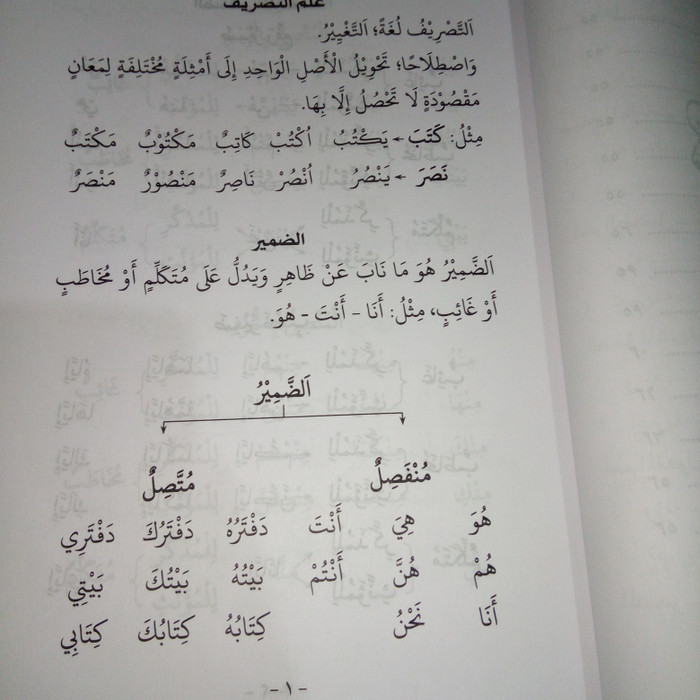 علم التصريف
اَلتَّصْرِيْفُ لُغَةً؛ اَلتَّغْيِيْرُ.
وَاصْطِلَاحًا؛ تَحْوِيْلُ الْأَصْلِ الْوَاحِدِ إِلَى أَمْثِلَةٍ مُخْتَلِفَةٍ لِمَعَانٍ
مَقْصُوْدَةٍ لَا تَحْصُلُ إِلَّا بِهَا.
مِثْلُ: كَتَبَ ← يَكْتُبُ اُكْتُبْ كَاتِبٌ مَكْتُوْبٌ مَكْتَبٌ
نَصَرَ ← يَنْصُرُ اُنْصُرْ نَاصِرٌ مَنْصُوْرٌ مَنْصَرٌ
الضمير
اَلضَّمِيْرُ هُوَ مَا نَابَ عَنْ ظَاهِرٍ وَيَدُلُّ عَلَى مُتَكَلِّمٍ أَوْ مُخَاطَبٍ
أَوْ غَائِبٍ، مِثْلُ: أَنَا - أَنْتَ - هُوَ.
اَلضَّمِيْرُ
مُنْفَصِلٌ مُتَّصِلٌ
هُوَ هِيَ أَنْتَ دَفْتَرُهُ دَفْتَرُكَ دَفْتَرِي
هُمْ هُنَّ أَنْتُمْ بَيْتُهُ بَيْتُكَ بَيْتِي
أَنَا نَحْنُ كِتَابُهُ كِتَابُكَ كِتَابِي
- ١ -